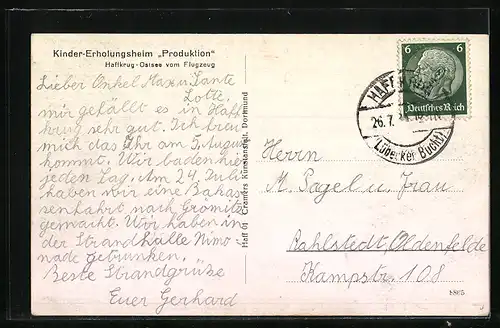 Kinder-Erholungsheim „Produktion“
Haffkrug-Ostsee vom Flugzeug
Lieber Onkel Max u. Tante
Lotte.
mir gefällt es in Haff
krug sehr gut. Ich freu
mich das Ihr am 5. August
kommt. Wir baden hier
jeden Tag. Am 24. Juli
haben wir eine Bakas
senfahrt nach Grömitz
gemacht. Wir haben in
der Strandhalle Limo
nade getrunken.
Beste Strandgrüße
Euer Gerhard
Haff 61 Cramers Kunstanstalt, Dortmund
6 6
Deutsches Reich
26.7.
(Lübecker Bucht)
Herrn
M. Pagel u. Frau
Rahlstedt, Oldenfelde
Kampstr. 108